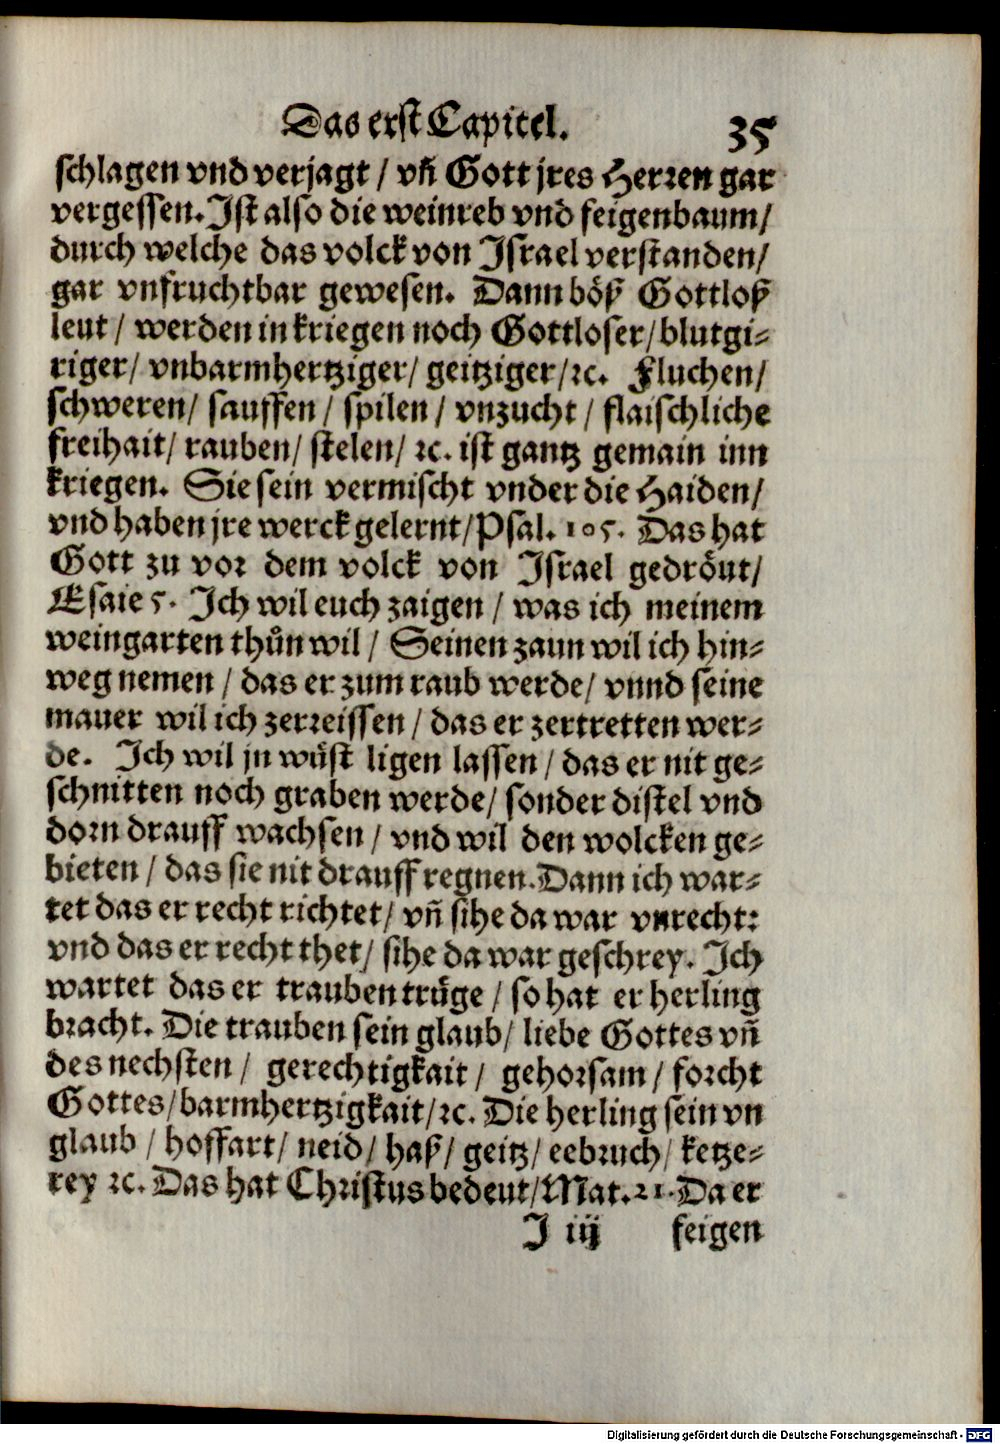 Das erst Capitel. 35
schlagen vnd verjagt / vñ Gott jres Herren gar
vergessen. Ist also die weinreb vnd feigenbaum /
durch welche das volck von Israel verstanden /
gar vnfruchtbar gewesen. Dann böß Gottloß
leut / werden in kriegen noch Gottloser / blutgi⸗
riger / vnbarmhertziger / geitziger / ꝛc. Fluchen /
schweren / sauffen / spilen / vnzucht / flaischliche
freihait / rauben / stelen / ꝛc. ist gantz gemain inn
kriegen. Sie sein vermischt vnder die Haiden /
vnd haben jre werck gelernt / Psal. 105. Das hat
Gott zu vor dem volck von Israel gedröut /
Esaie 5. Ich wil euch zaigen / was ich meinem
weingarten thůn wil / Seinen zaun wil ich hin⸗
weg nemen / das er zum raub werde / vnnd seine
mauer wil ich zerreissen / das er zertretten wer⸗
de. Ich wil jn wüst ligen lassen / das er nit ge⸗
schnitten noch graben werde / sonder distel vnd
dorn drauff wachsen / vnd wil den wolcken ge⸗
bieten / das sie nit drauff regnen. Dann ich war⸗
tet das er recht richtet / vñ sihe da war vnrecht:
vnd das er recht thet / sihe da war geschrey. Ich
wartet das er trauben trüge / so hat er herling
bracht. Die trauben sein glaub / liebe Gottes vñ
des nechsten / gerechtigkait / gehorsam / forcht
Gottes / barmhertzigkait / ꝛc. Die herling sein vn
glaub / hoffart / neid / haß / geitz / eebruch / ketze⸗
rey ꝛc. Das hat Christus bedeut / Mat. 21. Da er
I iij feigen
Digitalisierung gefördert durch die Deutsche Forschungsgemeinschaft - DFG